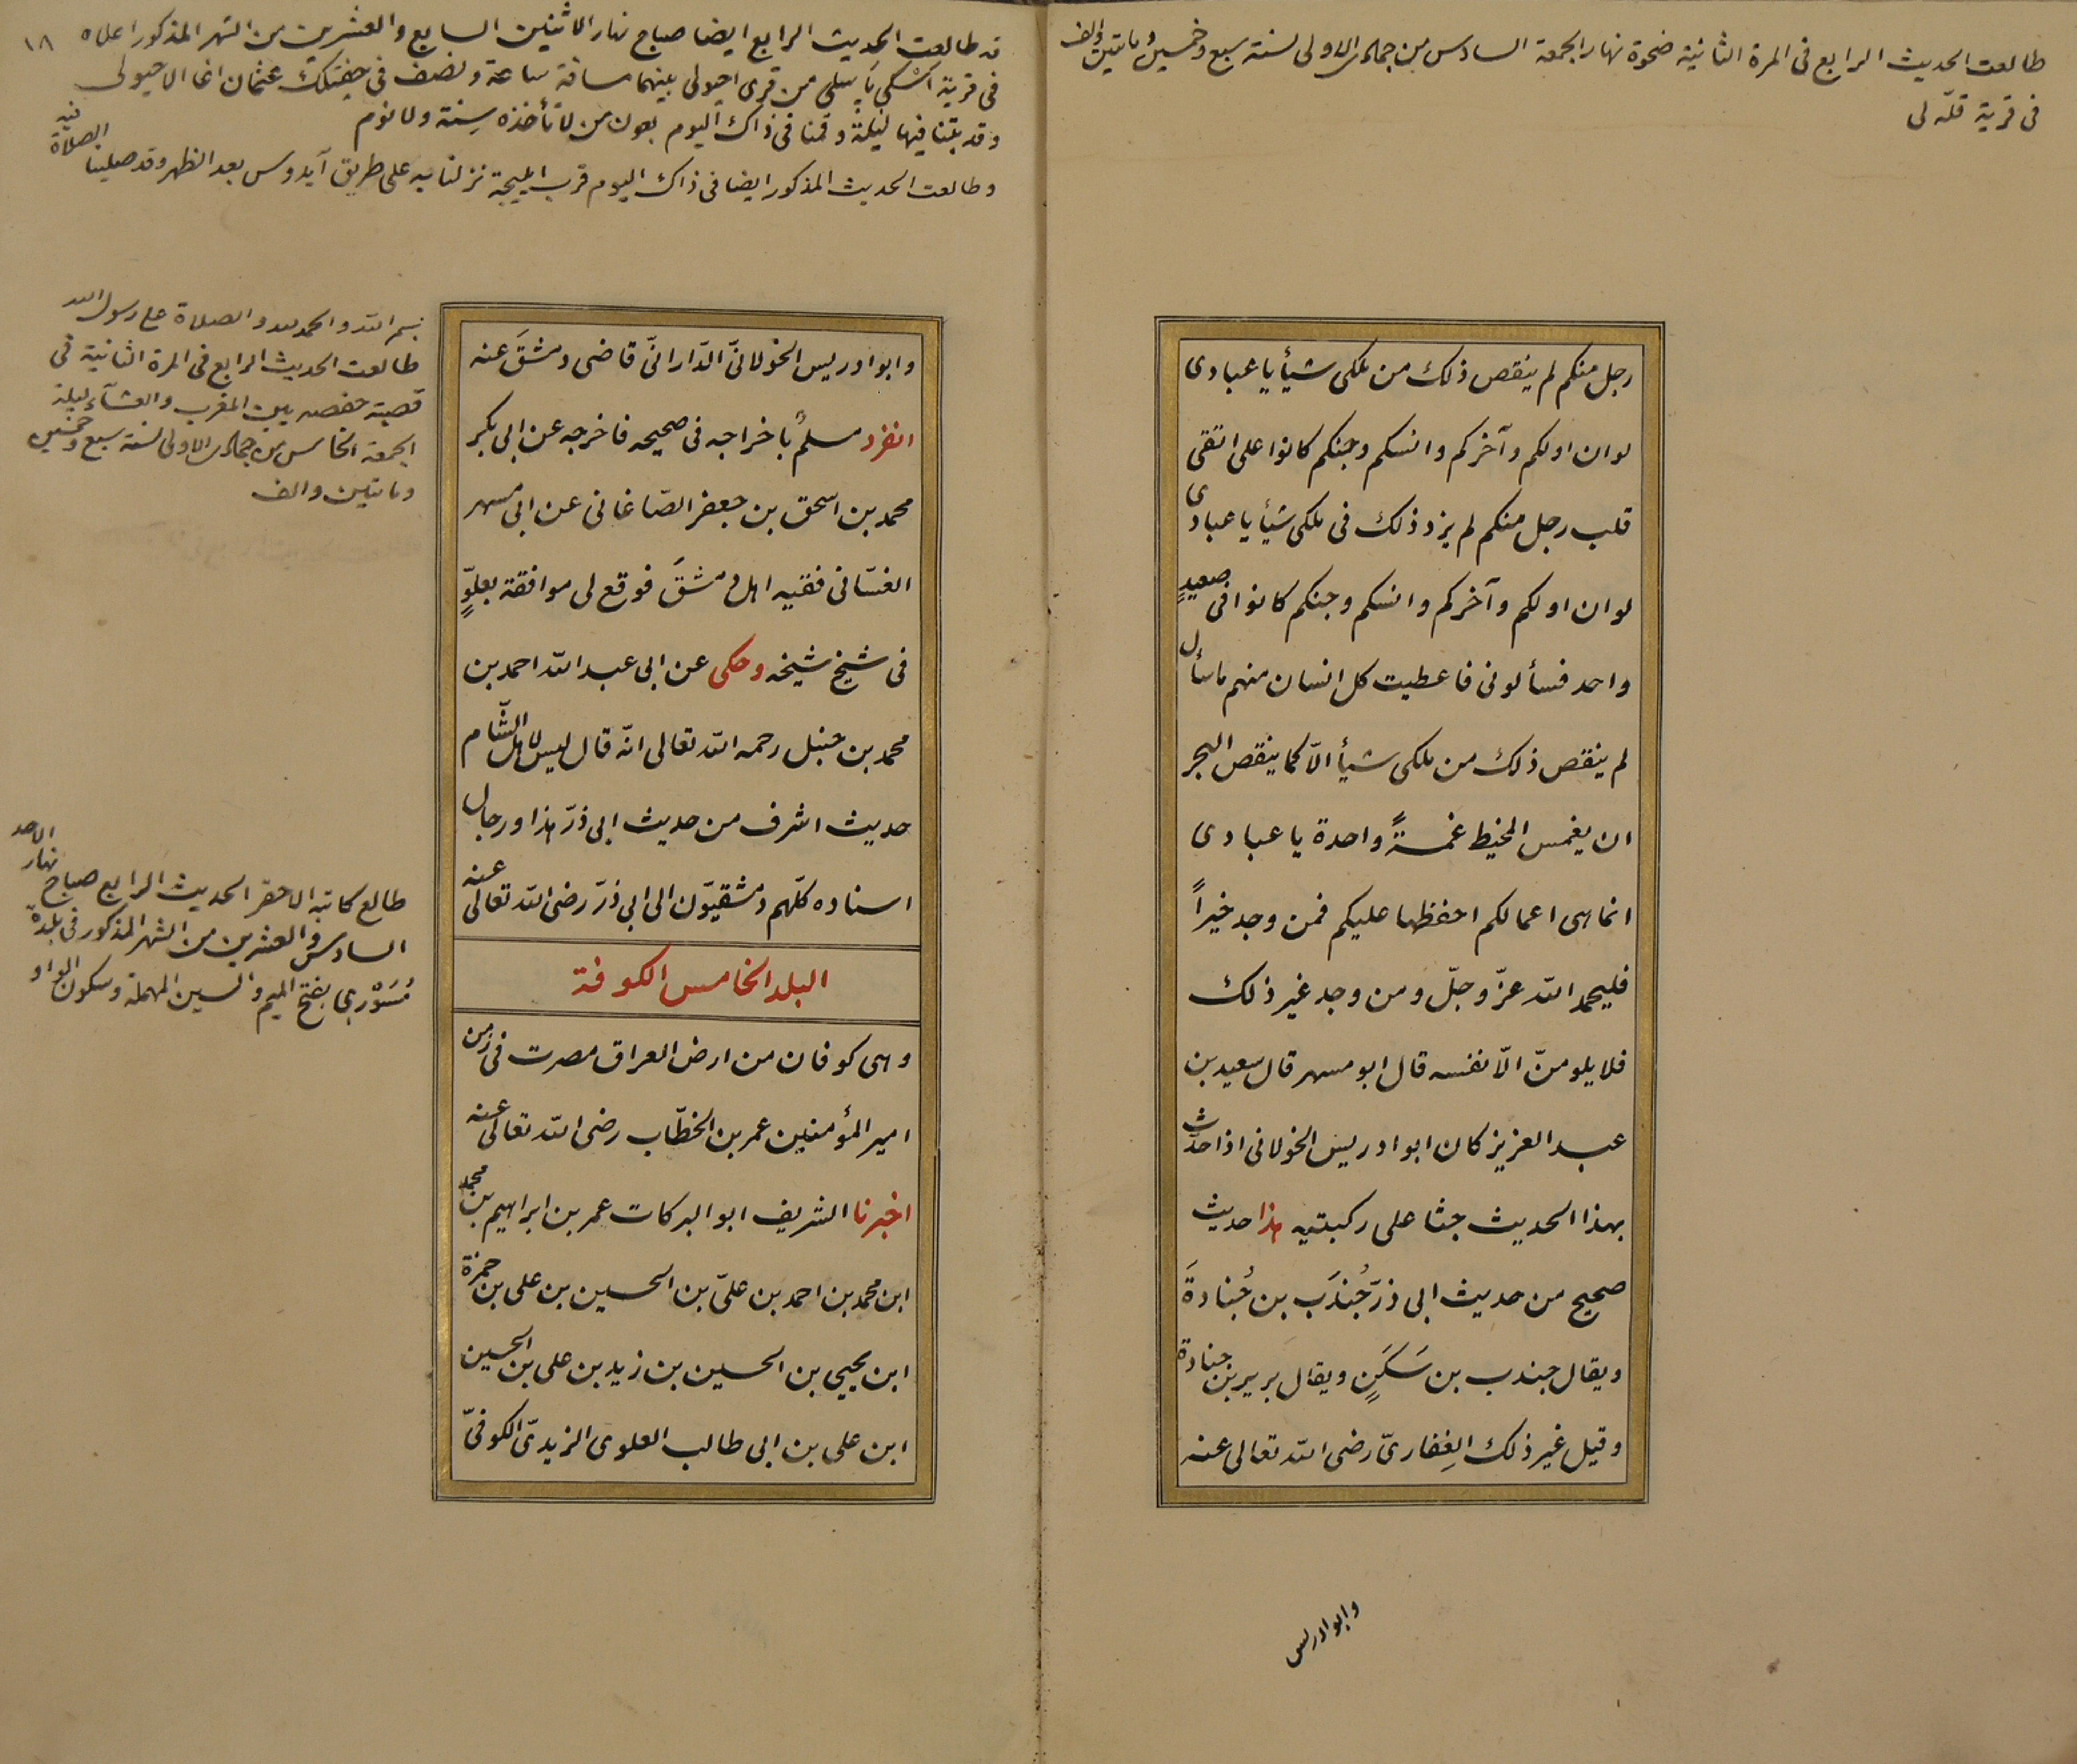 طالعت الحديث الرابع فى المرة الثانية ضحوة نهار الجمعة السادس من جمادى الاولى لسنة سبع وخمسين ومايتين والف
فى قرية قلّه لى
رجل منكم لم ينقص ذلك من ملكى شيأ يا عبادى
لو ان اولكم وآخركم وانسكم وجنكم كانوا على اتقى
قلب رجل منكم لم يزد ذلك فى ملكى شيأ يا عبادى
لو ان اولكم وآخركم وانسكم وجنكم كانوا فى صعيدٍ
واحد فسألونى فاعطيت كل انسان منهم ما سأل
لم ينقص ذلك من ملكى شيأ الّا كما ينقص البحر
ان يغمس المخيط غمسةً واحدة يا عبادى
انما هى اعمالكم احفظها عليكم فمن وجد خيراً
فليحمد الله عزّ وجلّ ومن وجد غير ذلك
فلا يلومنّ الّا نفسه قال ابو مسهر قال سعيد بن
عبد العزيز كان ابو ادريس الخولانى اذا حدّث
بهذا الحديث جثا على ركبتيه هذا حديث
صحيح من حديث ابى ذرّ جُندَب بن جُنادةَ
ويقال جندب بن سَكَنٍ ويقال برير بن جنادة
وقيل غير ذلك الغِفارىّ رضى الله تعالى عنه
وابو ادريس
١٨
قد طالعت الحديث الرابع ايضا صباح نهار الاثنين السابع والعشرين من الشهر المذكور اعلاه
فى قرية اسْكى يَايلى من قرى اجولى بينهما مسافة ساعة ونصف فى جفتلك عثمان اغا الاجيولى
وقد بتنا فيها ليلةً وقمنا فى ذاك اليوم بعون من لا تأخذه سِنة ولا نوم
وطالعت الحديث المذكور ايضا فى ذاك اليوم قرب ايليجة نزلنا به على طريق آيدوس بعد الظهر وقد صلينا فيه الصلاة
بسم الله والحمد لله والصلاة على رسول الله
طالعت الحديث الرابع فى المرة الثانية فى
قصبة حفصه بين المغرب والعشآء ليلة
الجمعة الخامس من جمادى الاولى لسنة سبع وخمسين
ومايتين والف
طالع كاتبه الاحقر الحديث الرابع صباح نهار الاحد
السادس والعشرين من الشهر المذكور فى بلدة
مُسَوْرى بفتح الميم والسين المهملة وسكون الواو
وابو ادريس الخولانىّ الدّارانىّ قاضى دمشقَ عنه
انفرد مسلمٌ باخراجه فى صحيحه فاخرجه عن ابى بكر
محمد بن اسحق بن جعفر الصّاغانى عن ابى مسهر
الغسّانى فقيه اهل دمشقَ فوقع لى موافقة بعلوٍّ
فى شيخ شيخه وحكى عن ابى عبد الله احمد بن
محمد بن حنبل رحمه الله تعالى انّه قال ليس لاهل الشّام
حديث اشرف من حديث ابى ذرّ هذا ورجال
اسناده كلّهم دمشقيّون الى ابى ذرّ رضى الله تعالى عنه
البلد الخامس الكوفة
وهى كوفان من ارض العراق مصرت فى زمن
امير المؤمنين عمر بن الخطّاب رضى الله تعالى عنه
اخبرنا الشريف ابو البركات عمر بن ابراهيم بن محمد
ابن محمد بن احمد بن علىّ بن الحسين بن على بن حمزة
ابن يحيى بن الحسين بن زيد بن على بن الحسين
ابن على بن ابى طالب العلوى الزيدىّ الكوفىّ